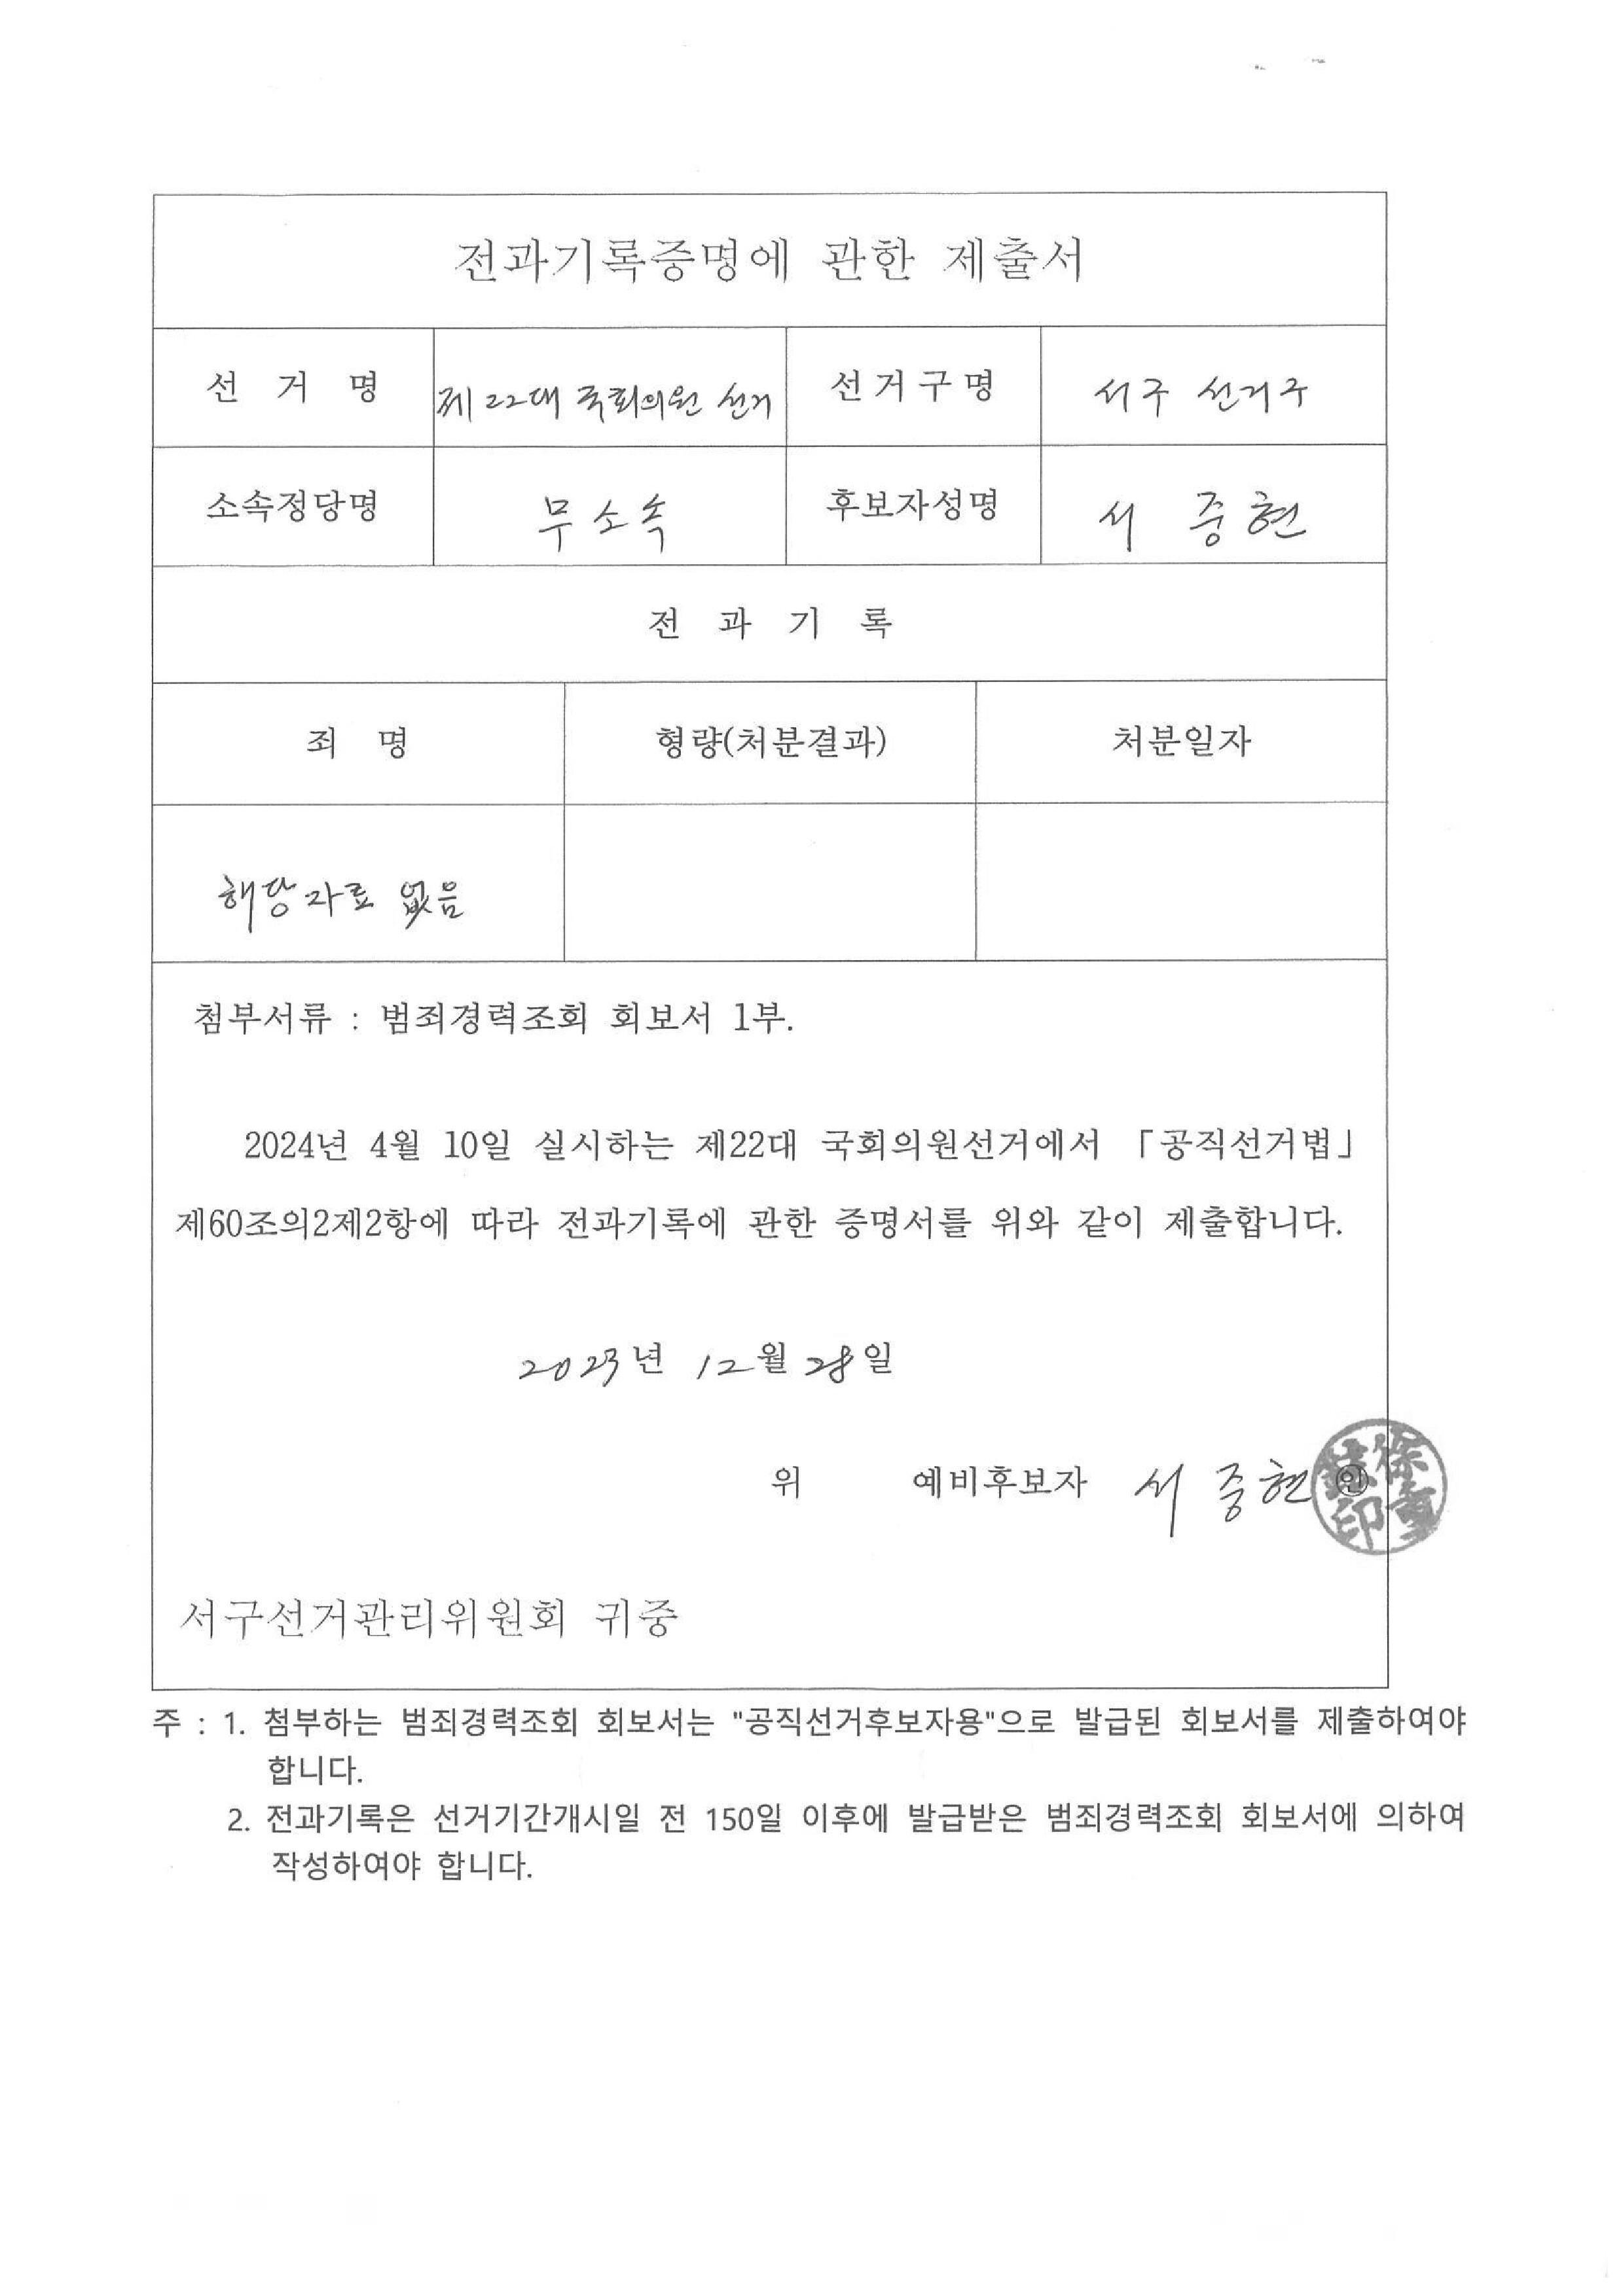 전과기록증명에 관한 제출서
선 거 명 제22대 국회의원 선거 선거구명 서구 선거구
소속정당명 무소속 후보자성명 서 중현
전 과 기 록
죄 명 형량(처분결과) 처분일자
해당자료 없음
첨부서류 : 범죄경력조회 회보서 1부.
2024년 4월 10일 실시하는 제22대 국회의원선거에서 「공직선거법」
제60조의2제2항에 따라 전과기록에 관한 증명서를 위와 같이 제출합니다.
2023년 12월 28일
위 예비후보자 서 중현 ㊞
徐重
印
서구선거관리위원회 귀중
주 : 1. 첨부하는 범죄경력조회 회보서는 "공직선거후보자용"으로 발급된 회보서를 제출하여야
합니다.
2. 전과기록은 선거기간개시일 전 150일 이후에 발급받은 범죄경력조회 회보서에 의하여
작성하여야 합니다.